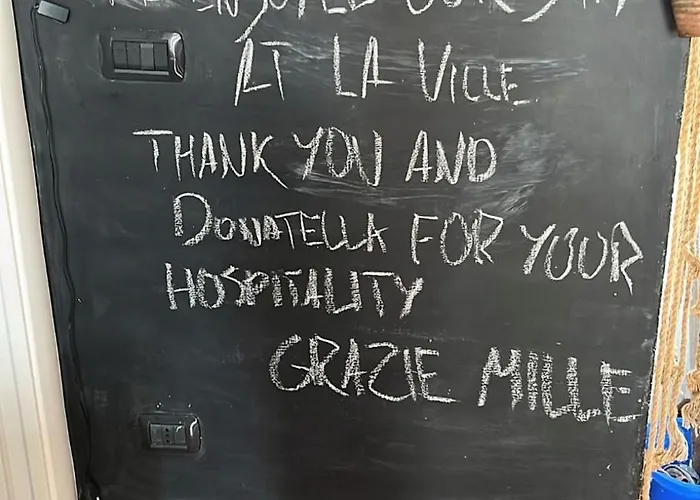 ENJOYED OUR STAY
AT LA VILLE
THANK YOU AND
DONATELLA FOR YOUR
HOSPITALITY
GRAZIE MILLE